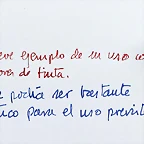 eve ejemplo de su uso co
ores de tinta.
podría ser bastante
ico para el uso previst